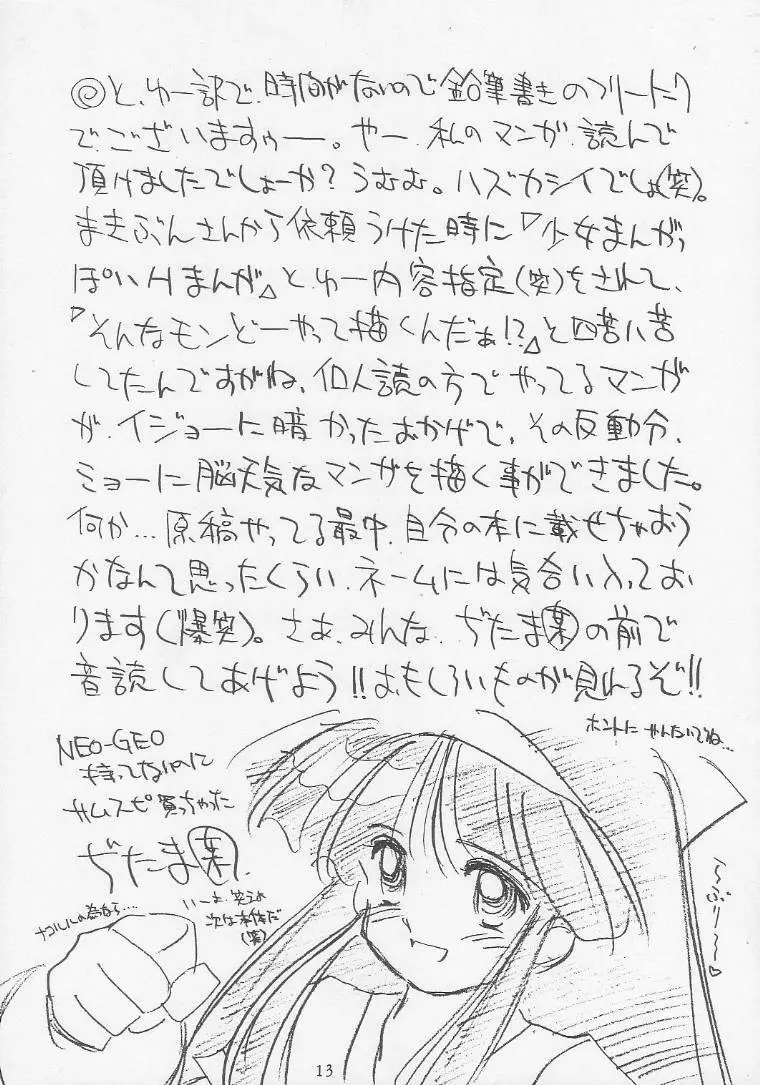 ◎と、ゆー訳で、時間がないので鉛筆書きのフリートーク
でございますぅー。やー、私のマンガ、読んで
頂けましたでしょーか？うむむ。ハズカシイでしょ(笑)。
まきぶんさんから依頼うけた時に『少女まんがっ
ぽいHまんが』と、ゆー内容指定(笑)をされて、
『そんなモンどーやって描くんだぁ!?』と四苦八苦
してたんですがね、個人誌の方でやってるマンガ
が、イジョーに暗かったおかげで、その反動分、
ミョーに脳天気なマンガを描く事ができました。
何か…原稿やってる最中、自分の本に載せちゃおう
かなんて思ったくらい、ネームには気合い入ってお
ります(爆笑)。さあ、みんな、ぢたま某の前で
音読してあげよう!!おもしろいものが見れるぞ!!
ホントに やんないでね…
NEO-GEO
持ってないのに
サムスピ買っちゃった
ぢたま某
いーよ、笑えよ
次は本体だ
(笑)
ナコルルの為なら…
〜ぷりー〜♡
13